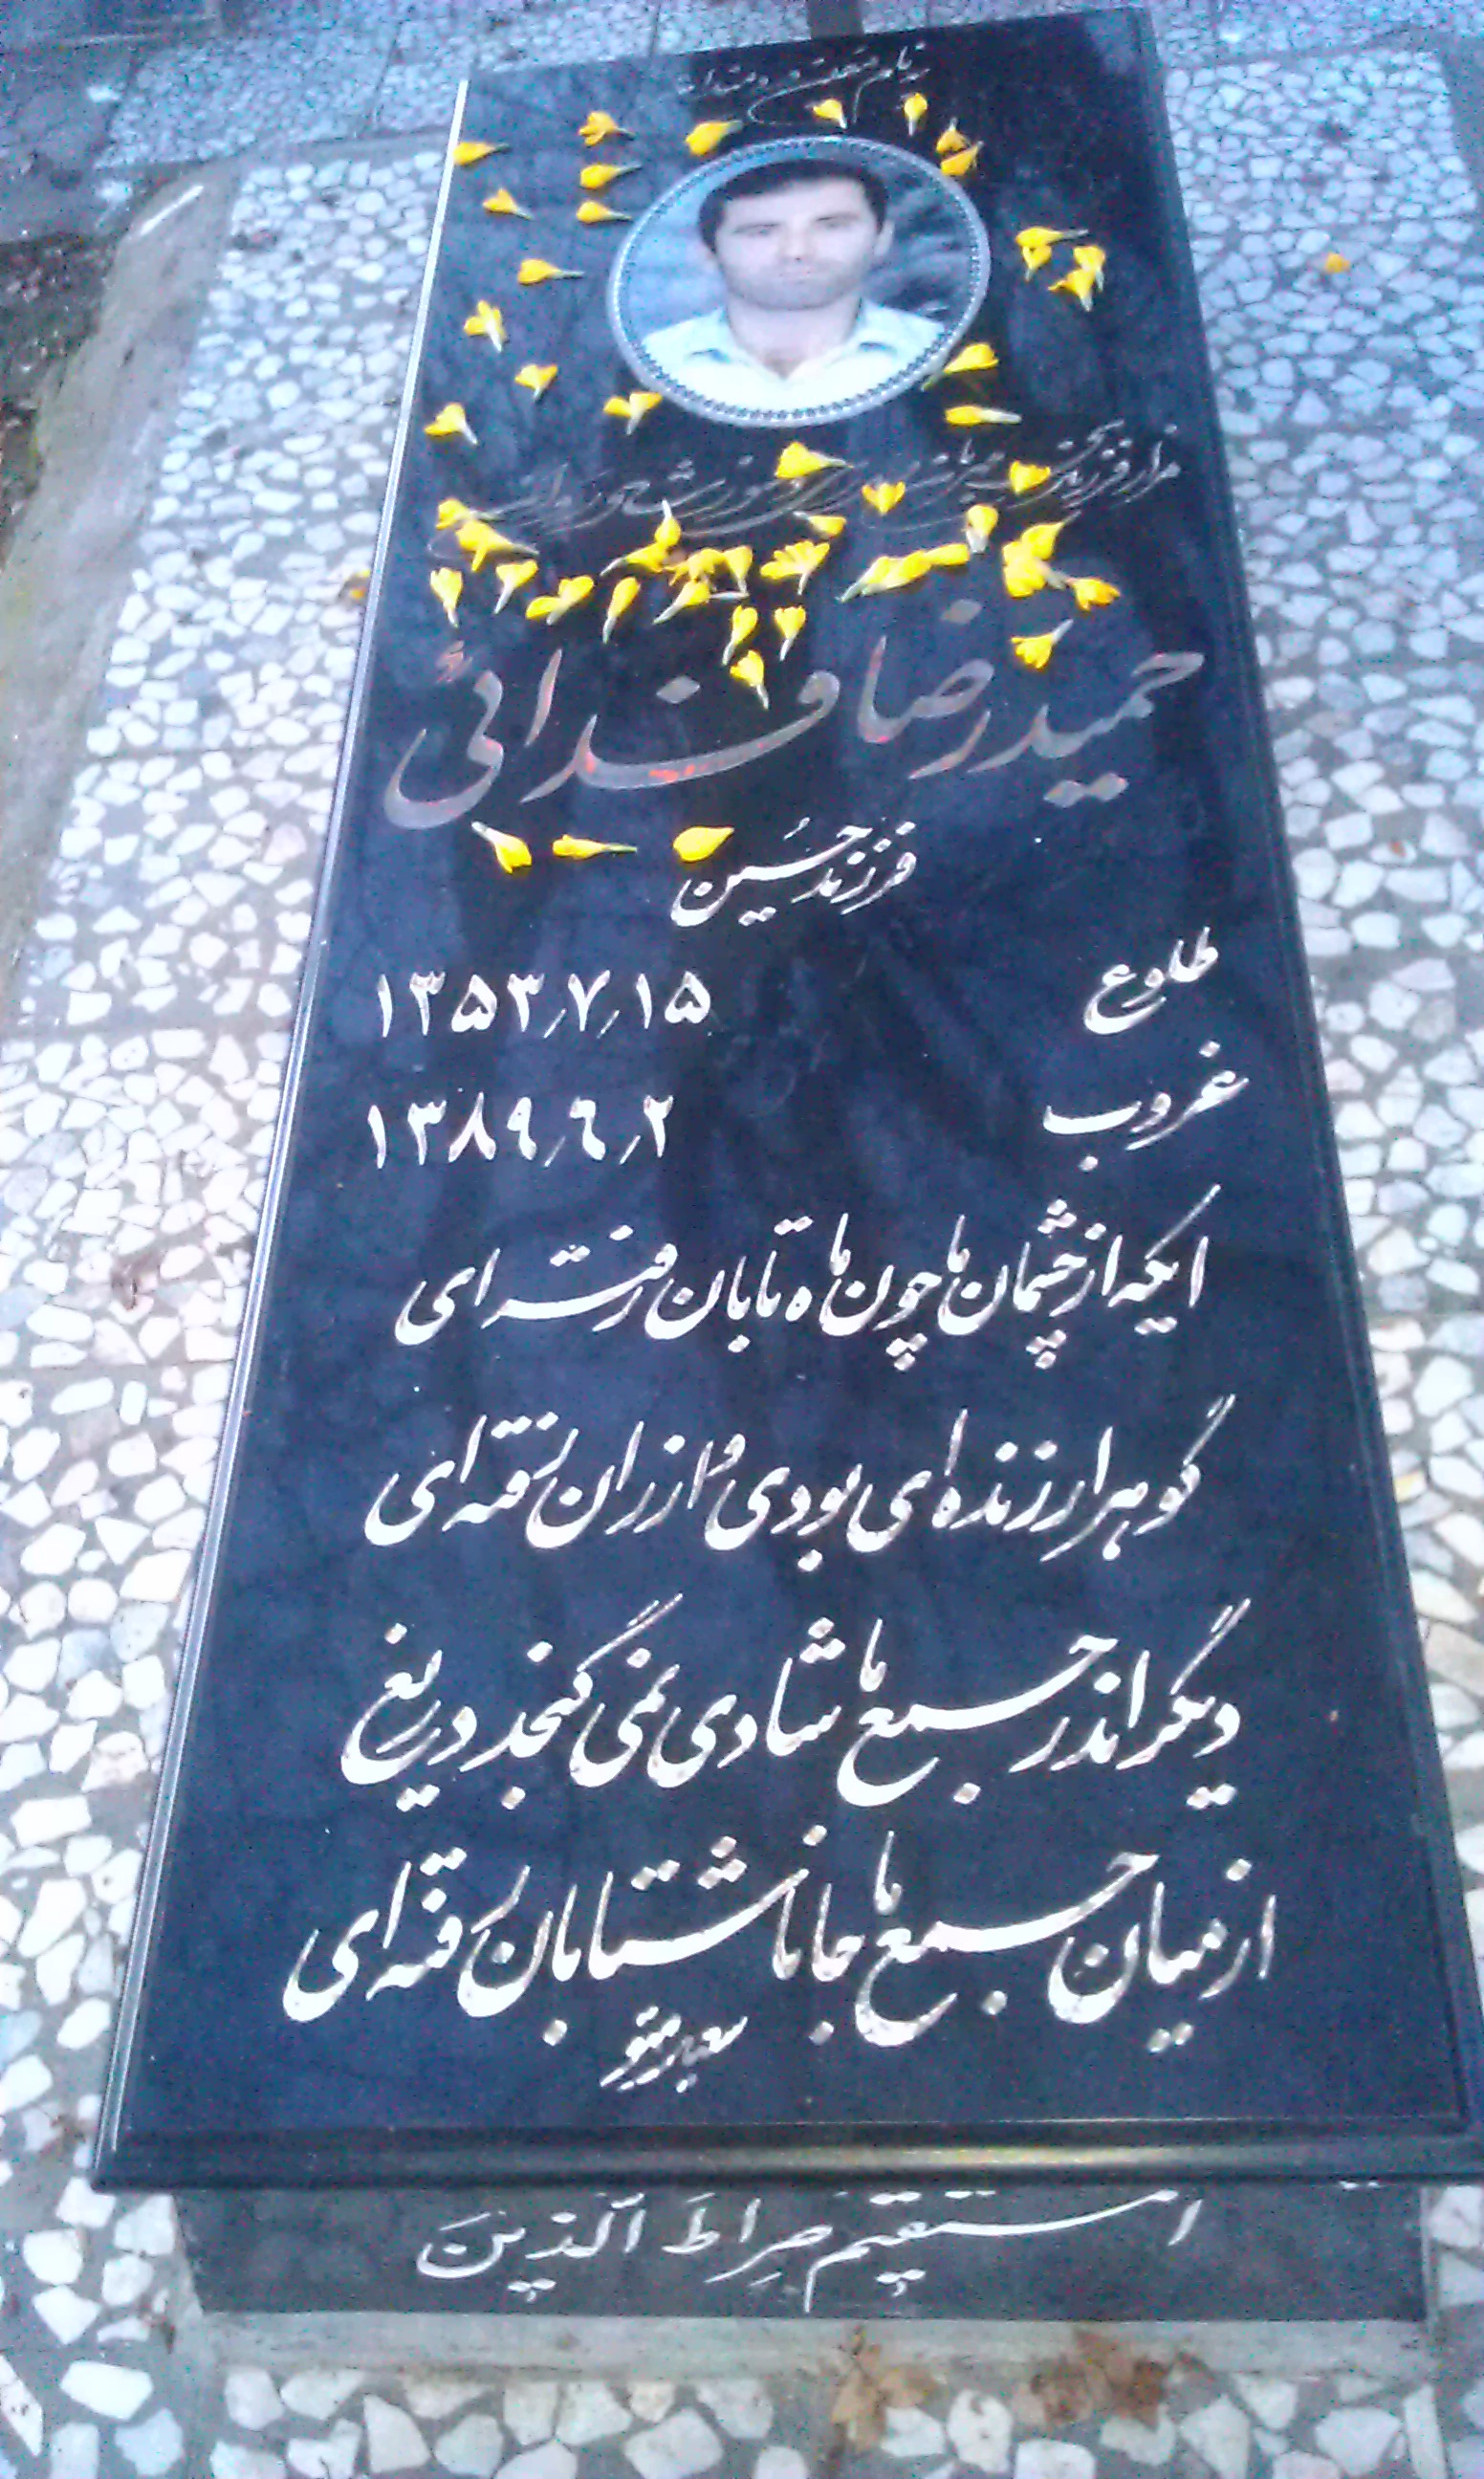 حمیدرضا فدائی
فرزند حسین
طلوع ۱۳۵۳٫۷٫۱۵
غروب ۱۳۸۹٫۶٫۲
ایکه از چشمان ما چون ماه تابان رفته ای
گوهر ارزنده ای بودی و ارزان رفته ای
دیگر اندر جمع ما شادی نمی گنجد دریغ
از میان جمع ما جانا شتابان رفته ای
المستقیم صِراطَ الَّذینَ